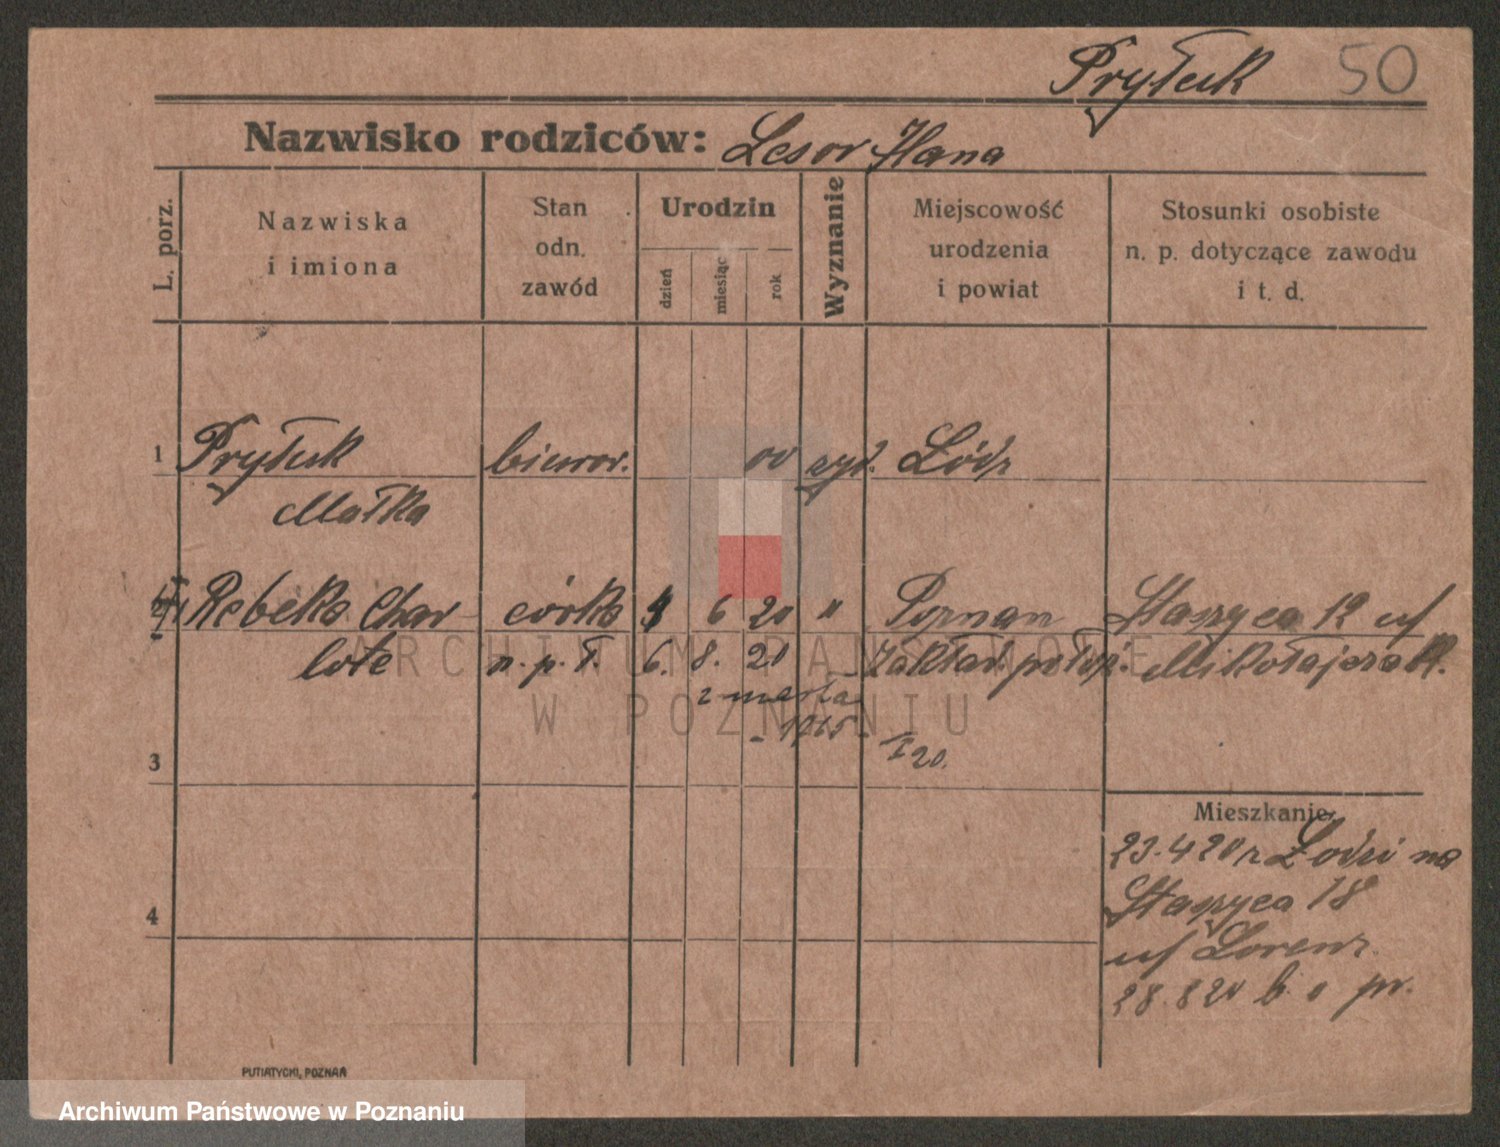 Pryłuk 50
Nazwisko rodziców: Lesor Hana
L. porz.
Nazwiska
i imiona
Stan
odn.
zawód
Urodzin
dzień
miesiąc
rok
Wyznanie
Miejscowość
urodzenia
i powiat
Stosunki osobiste
n. p. dotyczące zawodu
i t. d.
1 Pryłuk biurow. 00 żyd. Łódz
Małka
2 Rebeka Char córka 6 20 " Poznan Staszyca 12 u/
lote n. p. ł. 6. 8. 20 Zakład. położ. Mikołajczak.
2 marta
- 1915 - I 20.
3
Mieszkanie
23.4 20 z Łodzi na
Staszyca 18
u/ Lorenz.
4
28.8 20 b. o pr.
PUTIATYCKI, POZNAŃ
ARCHIWUM PAŃSTWOWE
W POZNANIU
Archiwum Państwowe w Poznaniu